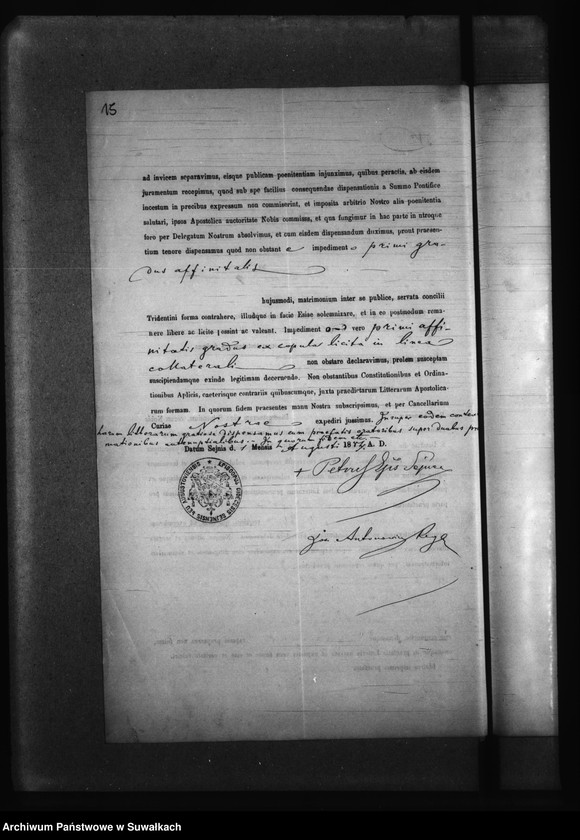 15
ad invicem separavimus, eisque publicam poenitentiam injunximus, quibus peractis, ab eisdem
juramentum recepimus, quod sub spe facilius consequendae dispensationis a Summo Pontifice
incestum in precibus expressum non commiserint, et imposita arbitrio Nostro alia poenitentia
salutari, ipsos Apostolica auctoritate Nobis commissa, et qua fungimur in hac parte in utroque
foro per Delegatum Nostrum absolvimus, et cum eisdem dispensandum duximus, prout praesen-
tium tenore dispensamus quod non obstante impedimento primi gra-
dus affinitatis
hujusmodi, matrimonium inter se publice, servata concilii
Tridentini forma contrahere, illudque in facie Eslae solemnizare, et in eo postmodum rema-
nere libere ac licite possint ac valeant. Impediment vero primi affi-
nitatis gradus ex copula licita in linea
collaterali non obstare declaravimus, prolem susceptam
suscipiendamque exinde legitimam decernendo. Non obstantibus Constitutionibus et Ordina-
tionibus Aplicis, caeterisque contrariis quibuscunque, juxta praedictarum Litterarum Apostolica-
rum formam. In quorum fidem praesentes manu Nostra subscripsimus, et per Cancellarium
Curiae Nostrae expediri jussimus. In super eadem
litterarum gratiose dispensamus cum praefatis oratoribus super duabus
In quorum fidem
Datum Sejnis d. 1 Mensis Augusti 187 A. D.
+ Petrus Eps
Antonowicz
Archiwum Państwowe w Suwałkach